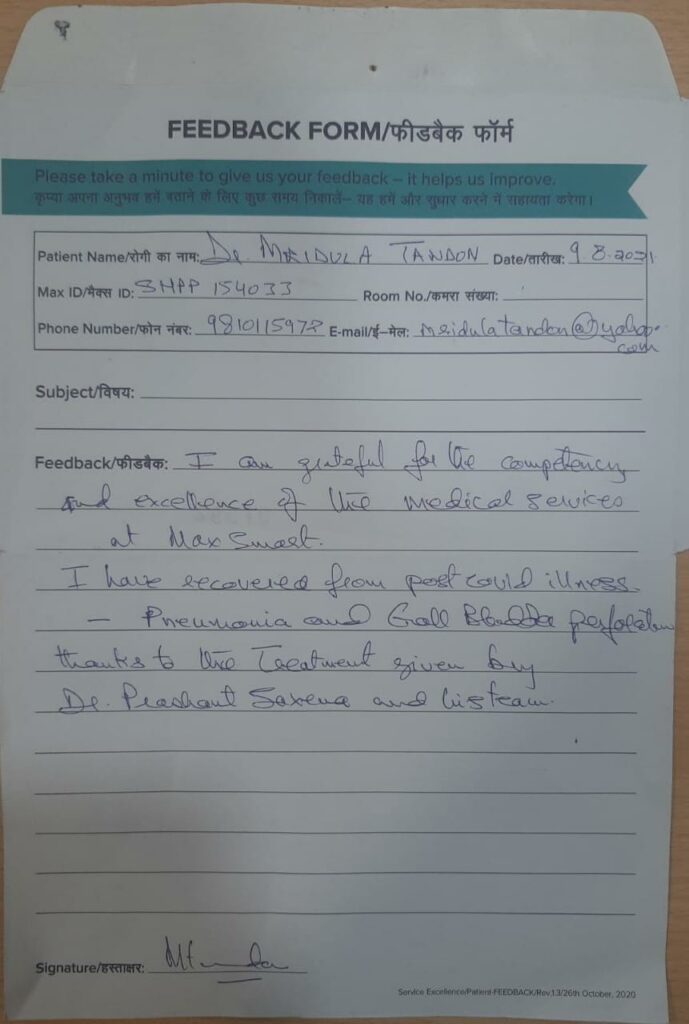 FEEDBACK FORM/फीडबैक फॉर्म
Please take a minute to give us your feedback – it helps us improve.
कृप्या अपना अनुभव हमें बताने के लिए कुछ समय निकालें– यह हमें और सुधार करने में सहायता करेगा।
Patient Name/रोगी का नाम: Dr. MRIDULA TANDON Date/तारीख: 9.8.2021
Max ID/मैक्स ID: SMPP 154033 Room No./कमरा संख्या:
Phone Number/फोन नंबर: 9810115972 E-mail/ई–मेल: mridulatandon@yahoo.
com
Subject/विषय:
Feedback/फीडबैक: I am grateful for the competency
and excellence of the medical services
at Max Smart.
I have recovered from post covid illness
— Pneumonia and Gall Bladder perforation
thanks to the Treatment given by
Dr. Prashant Saxena and his team.
Signature/हस्ताक्षर:
Service Excellence/Patient-FEEDBACK/Rev.1.3/26th October, 2020